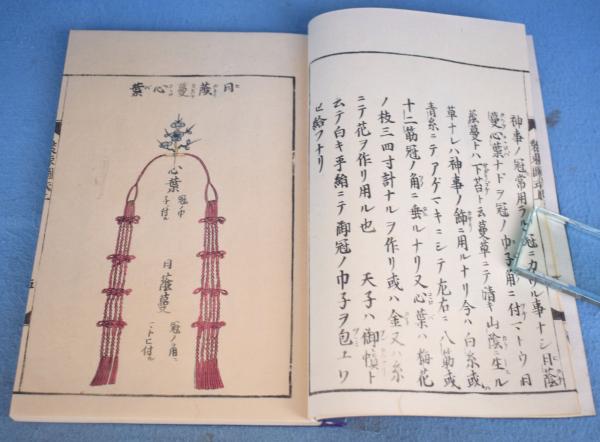 神事ノ冠常用ラル冠ニカワル事ナシ日蔭
蔓心葉ナドヲ冠ノ巾子角ニ付ヽトウ日
蔭蔓トハ下苔ト云蔓草ニテ清キ山蔭ニ生ル
草ナレハ神事ノ飾ニ用ルナリ今ハ白糸或
青糸ニテアゲマキニシテ左右ニ八筋或
十二筋冠ノ角ニ垂ルナリ又心葉ハ梅花
ノ枝三四寸計ナルヲ作リ或ハ金又ハ糸
ニテ花ヲ作リ用ル也 天子ハ御幘ト
云テ白キ平絹ニテ御冠ノ巾子ヲ包上リ
セ給フナリ
日蔭蔓心葉
心葉
冠ノ巾
子付ル
日蔭蔓
冠ノ角ニ
ヽトヒ付ル